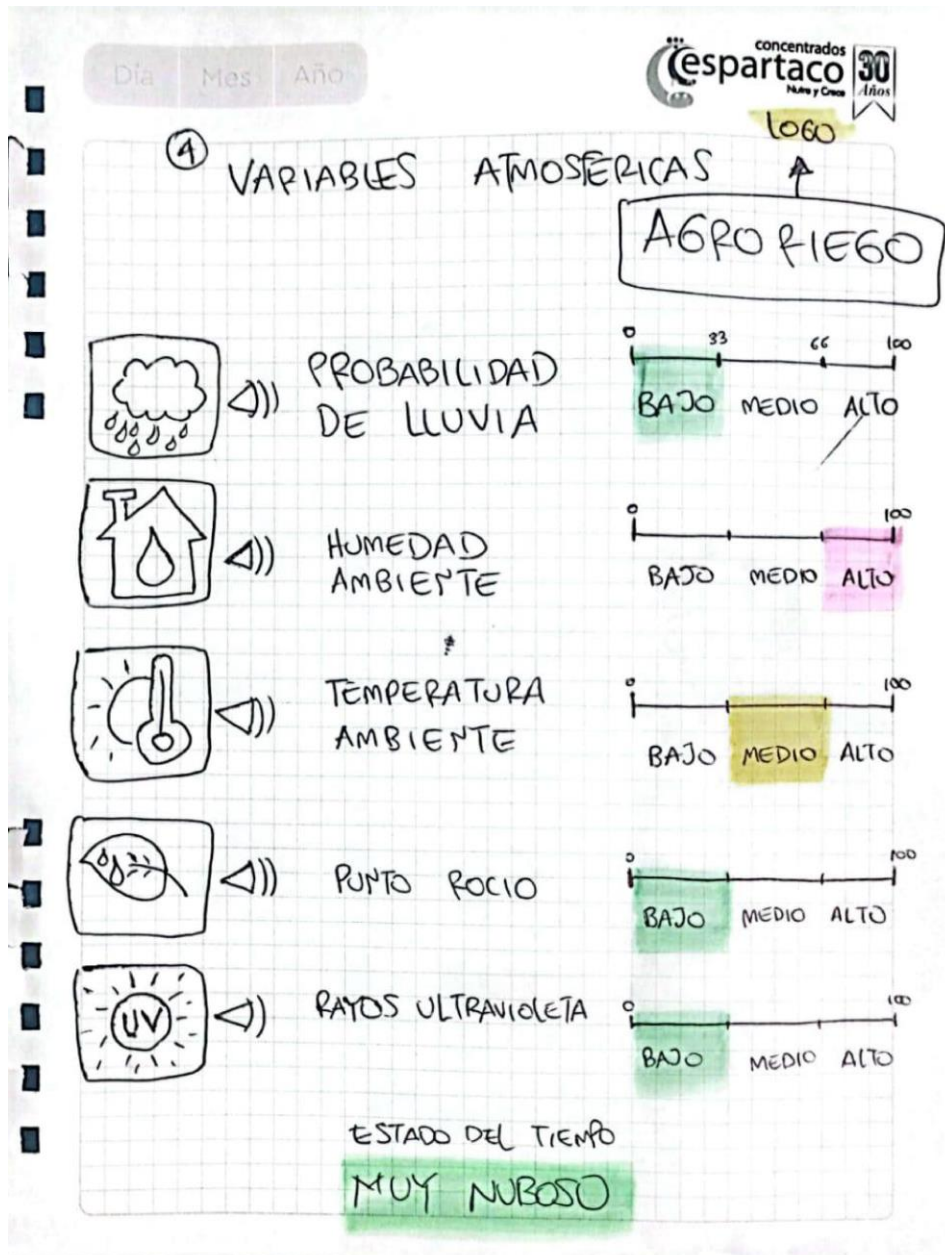 Día Mes Año
concentrados
espartaco
Nutre y Crece
30
Años
LOGO
4
VARIABLES ATMOSFERICAS
AGRO RIEGO
PROBABILIDAD
DE LLUVIA
0 33 66 100
BAJO MEDIO ALTO
HUMEDAD
AMBIENTE
0 100
BAJO MEDIO ALTO
TEMPERATURA
AMBIENTE
0 100
BAJO MEDIO ALTO
PUNTO ROCIO
0
BAJO MEDIO ALTO
UV
RAYOS ULTRAVIOLETA
0
BAJO MEDIO ALTO
ESTADO DEL TIEMPO
MUY NUBOSO